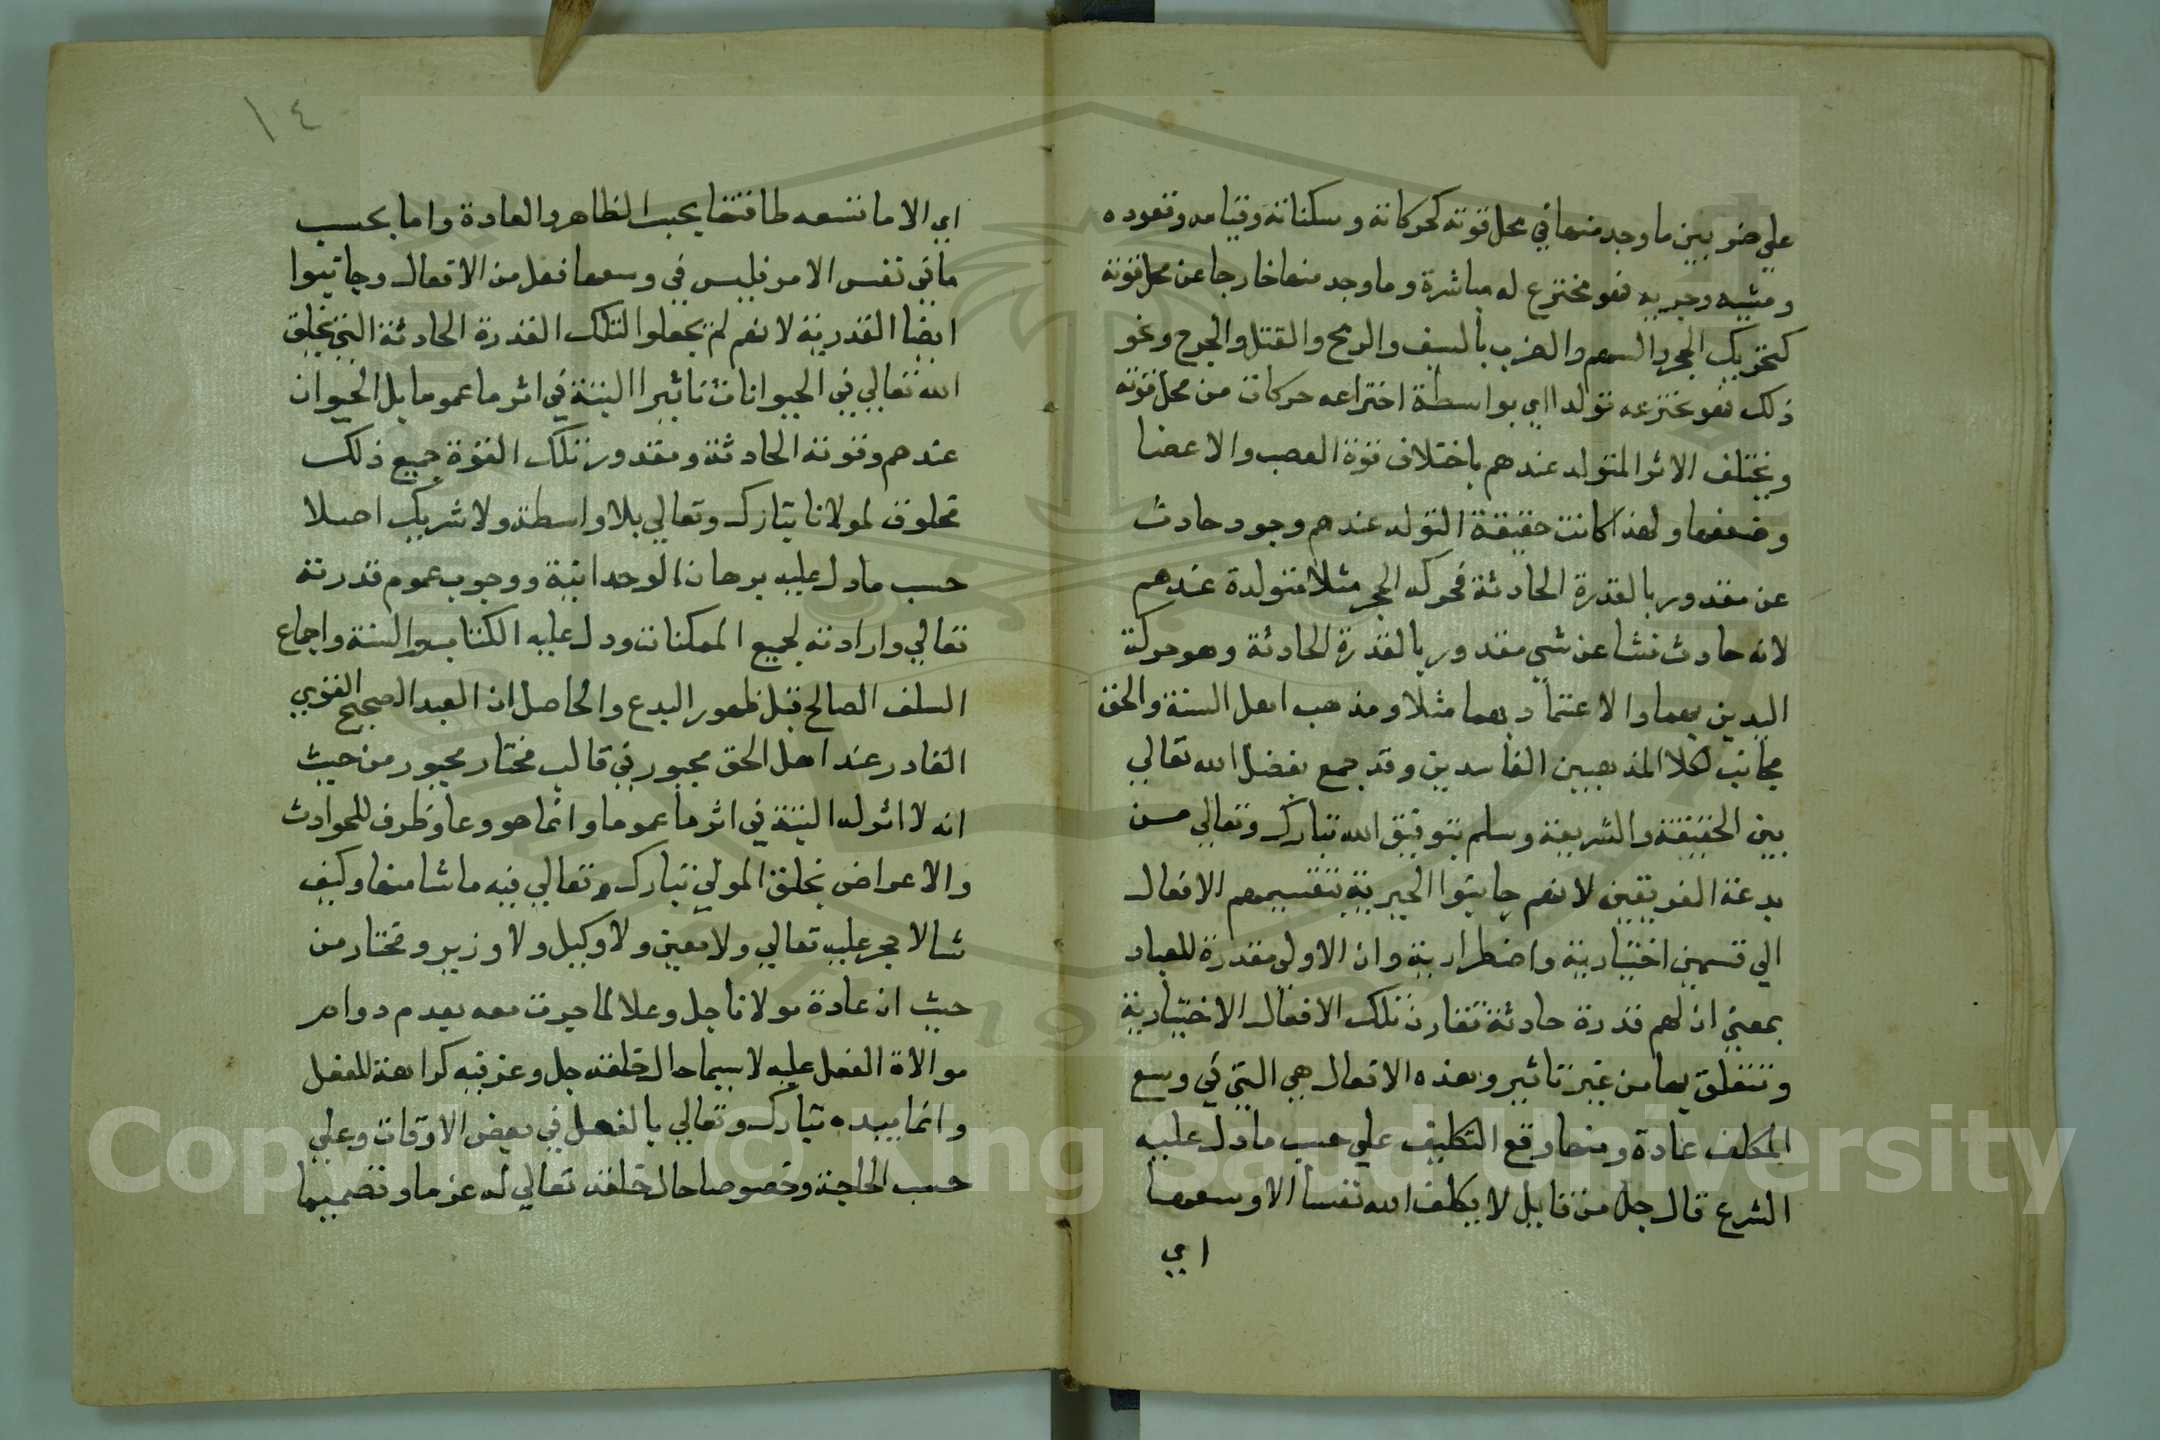 علي ضربين ما وجد منها في محل قوته كحركاته وسكناته وقيامه وقعوده
ومشيه وجريه فهو مخترع له مباشرة وما وجد منها خارجا عن محل قوته
كتحريك الحجر والسهم والضرب بالسيف والرمح والقتل والجرح ونحو
ذلك فهو مخترعه تولدا اي بواسطة اختراعه حركات من محل قوته
ويختلف الاثر المتولد عندهم باختلاف قوة العصب والاعضا
وضعفها ولهذا كانت حقيقة التولد عندهم وجود حادث
عن مقدور بالقدرة الحادثة فحركة الحجر مثلا متولدة عندهم
لانه حادث نشا عن شي مقدور بالقدرة الحادثة وهو حركة
اليدين بهما والاعتماد بهما مثلا ومذهب اهل السنة والحق
مجانب لكلا المذهبين الفاسدين وقد جمع بفضل الله تعالي
بين الحقيقة والشريعة وسلم بتوفيق الله تبارك وتعالي مسن
بدعة الفريقين لانهم جانبوا الجبرية بتقسيمهم الافعال
الي قسمين اختيارية واضطرارية وان الاولي مقدرة للعباد
بمعني ان لهم قدرة حادثة تقارن تلك الافعال الاختيارية
وتتعلق بها من غير تاثير وبهذه الافعال هي التي في وسع
المكلف عادة وبنحا وقع التكليف علي حسب ما دل عليه
الشرع قال جل من قايل لا يكلف الله نفسا الا وسعها
اي
١٤
اي الا ما تسعه طاقتها بحسب الظاهر والعادة واما بحسب
ما في نفس الامر فليس في وسعها فعل من الافعال وجانبوا
ايضا القدرية لانهم لم يجعلوا لتلك القدرة الحادثة التي يخلق
الله تعالي في الحيوانات تاثيرا البتة في اثر ما عموما بل الحيوان
عندهم وقوته الحادثة ومقدور تلك القوة جميع ذلك
مخلوق لمولانا تبارك وتعالي بلا واسطة ولا شريك اصلا
حسب ما دل عليه برهان الوحدانية ووجوب عموم قدرته
تعالي وارادته لجميع الممكنات ودل عليه الكتاب والسنة واجماع
السلف الصالح قبل ظهور البدع والحاصل ان العبد الصحيح القوي
القادر عند اهل الحق مجبور في قالب مختار مجبور من حيث
انه لا اثر له البتة في اثر ما عموما وانما هو وعا وظرف للحوادث
والاعراض يخلق المولي تبارك وتعالي فيه ما شا منها وكيف
شا لا حجر عليه تعالي ولا معين ولا وكيل ولا وزير ومختار من
حيث ان عادة مولانا جل وعلا لما جرت معه بعدم دوامر
موالاة الفعل عليه لا سيما حال خلقه جل وعز فيه كراهة للفعل
وانما يبده تبارك وتعالي بالفعل في بعض الاوقات وعلي
حسب الحاجة وخصوصا حال خلقه تعالي له عزما وتصميما